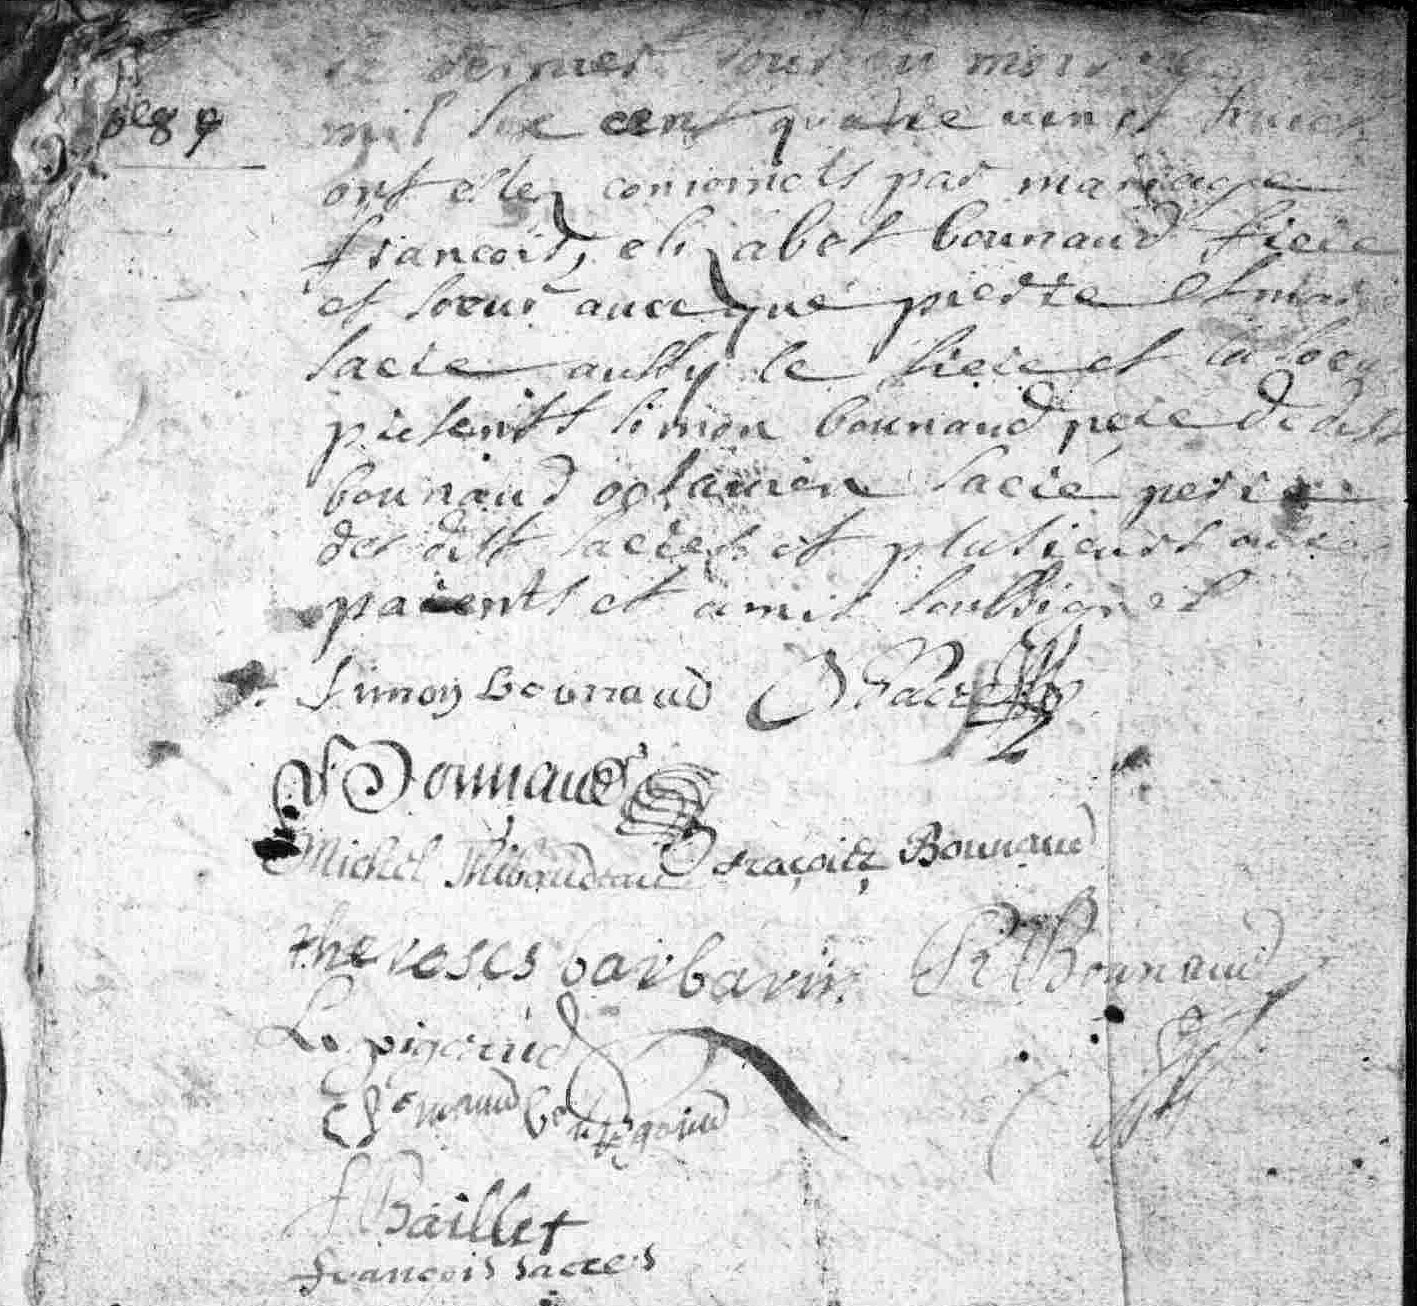 le dernier jour du mois
mil six cent quatre vin et huict
ont estez conioincts par mariage
françois, elizabet bounaud frere
et soeur auecque pierre et marie
sacre aussy le frere et la soeur
presents simon bounaud pere desdist
bounaud octauien sacré pere
des dist sacres et plusieurs autres
parents et amis soussignes
Simon bounaud O Sacre
f Bonnaud
Michel Thibaudeau françoise Bounaud
thereses barbarin R Bounaud
L pigornid
f Baillet
françois sacres